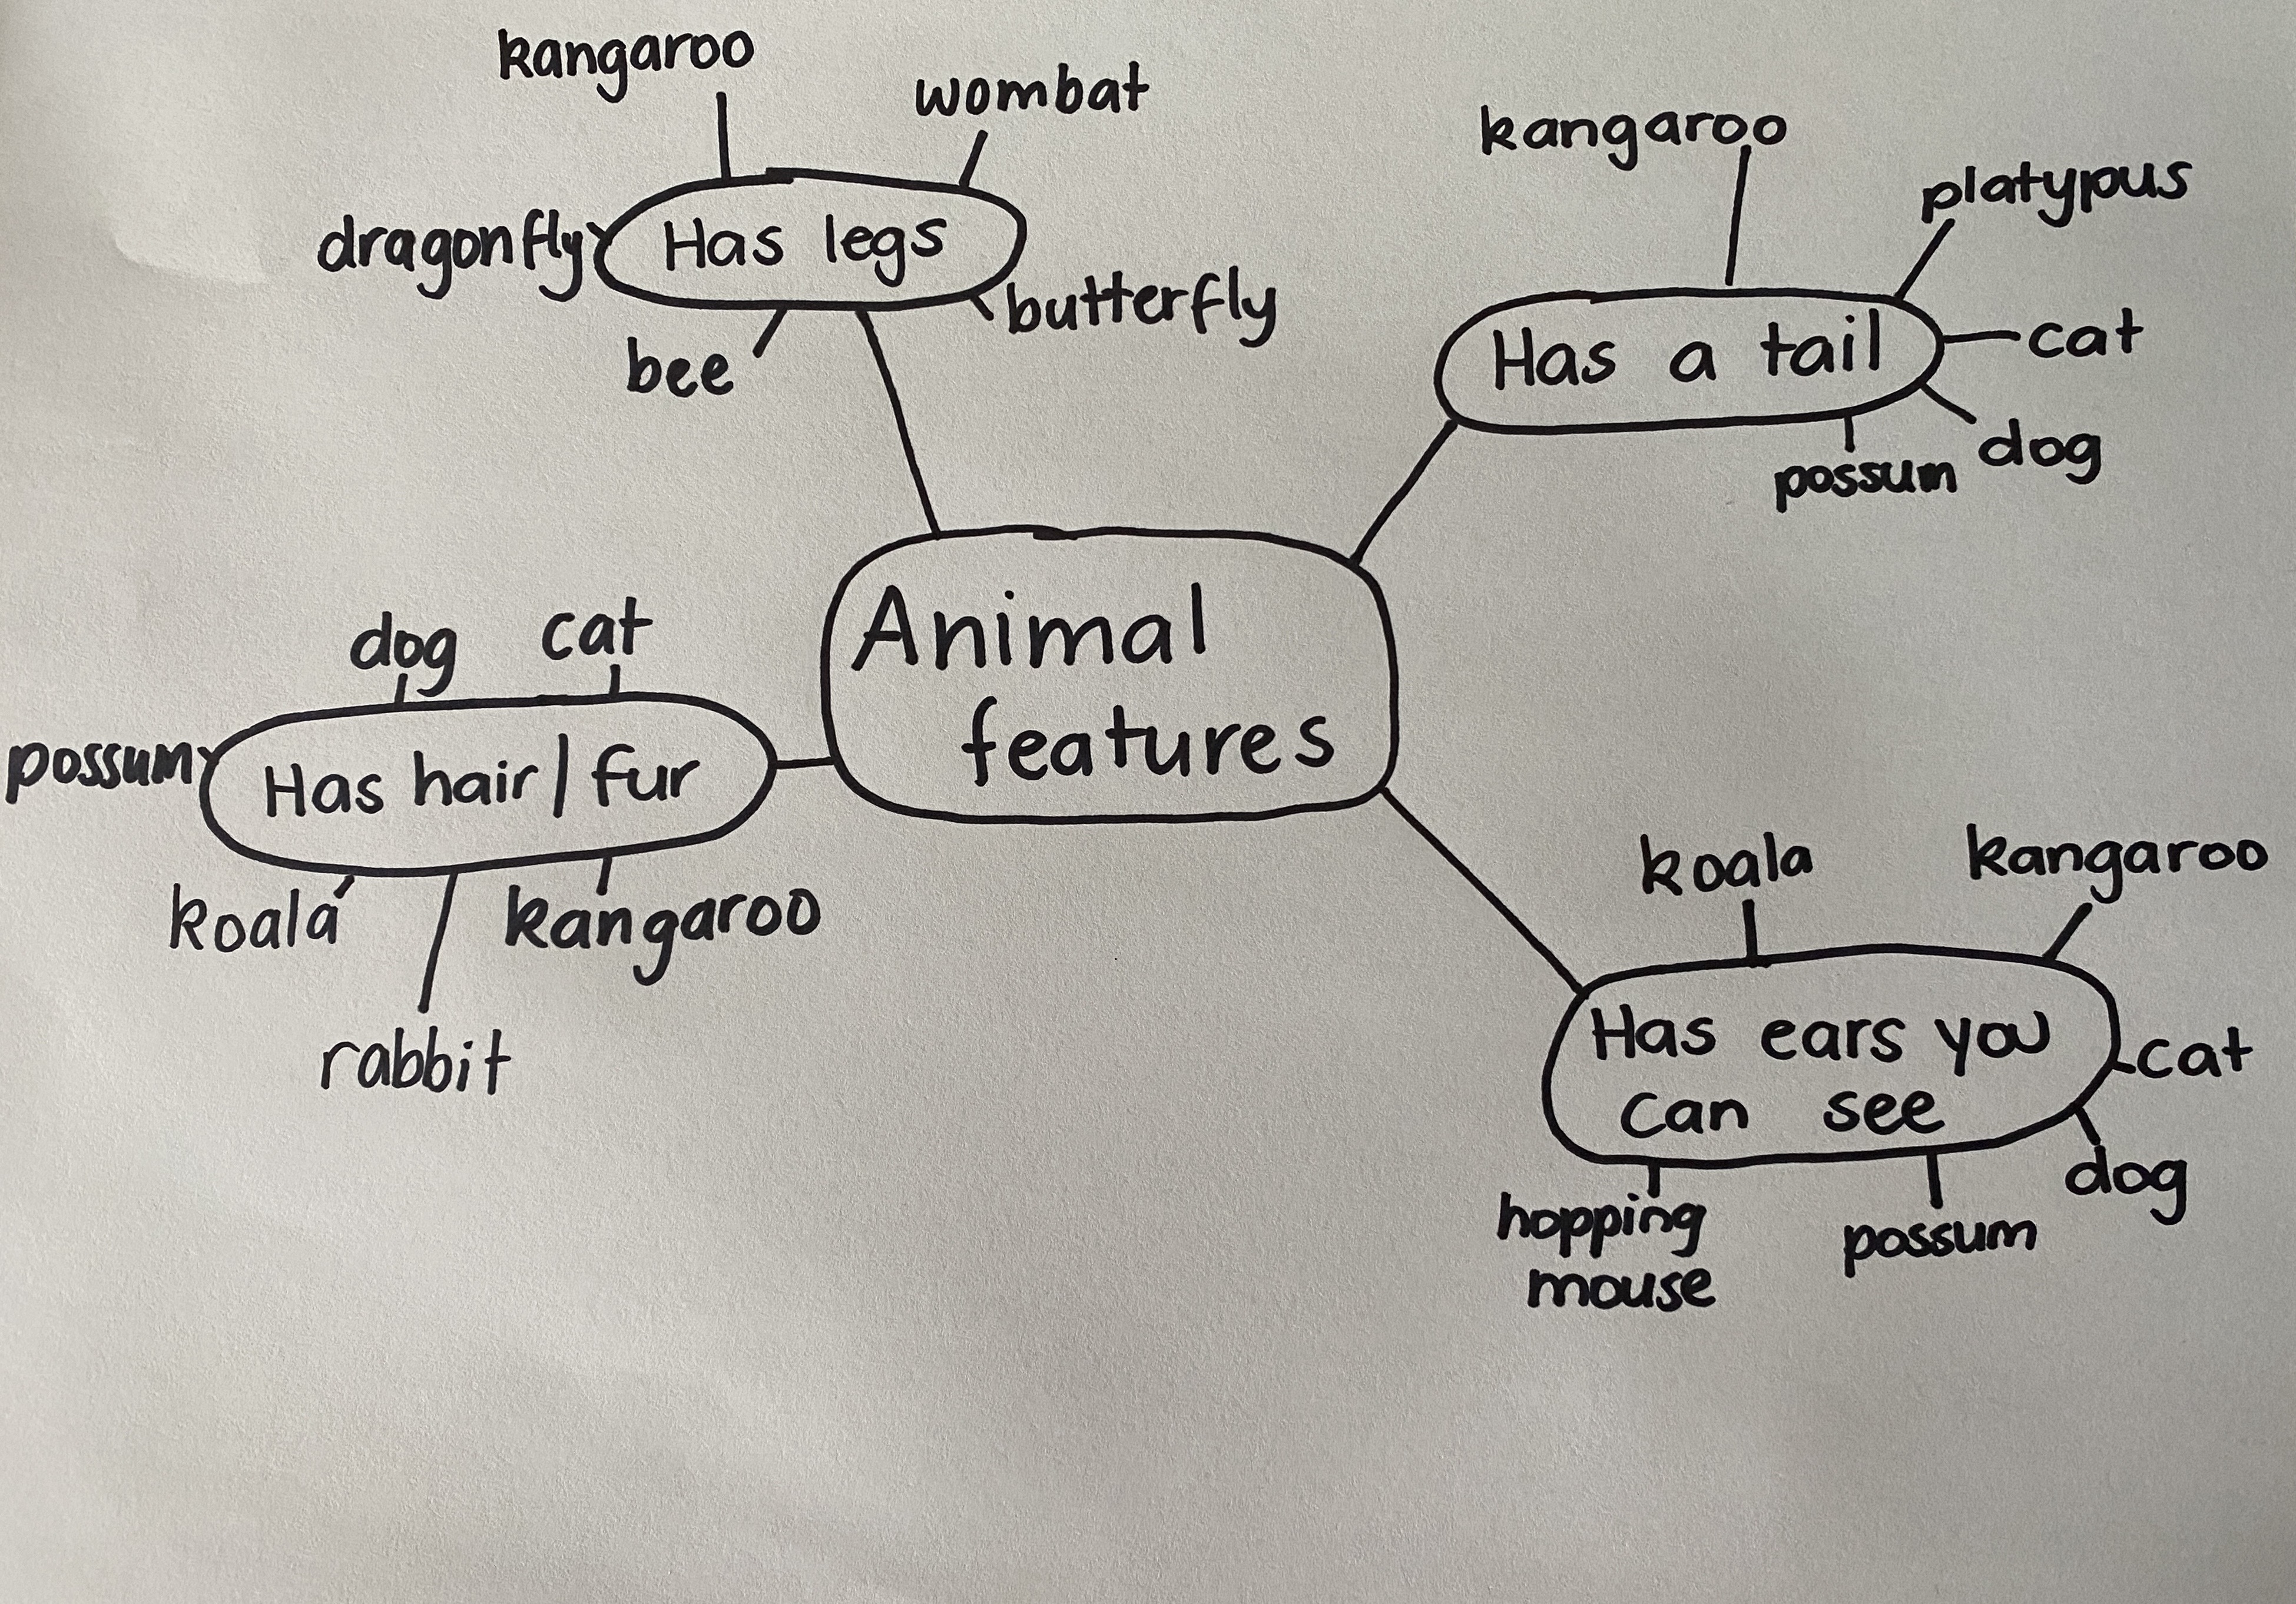 kangaroo
wombat
dragonfly
Has legs
butterfly
bee
kangaroo
platypus
Has a tail
cat
dog
possum
Animal
features
dog
cat
possum
Has hair/fur
koala
kangaroo
rabbit
koala
kangaroo
Has ears you
can see
cat
dog
hopping
mouse
possum